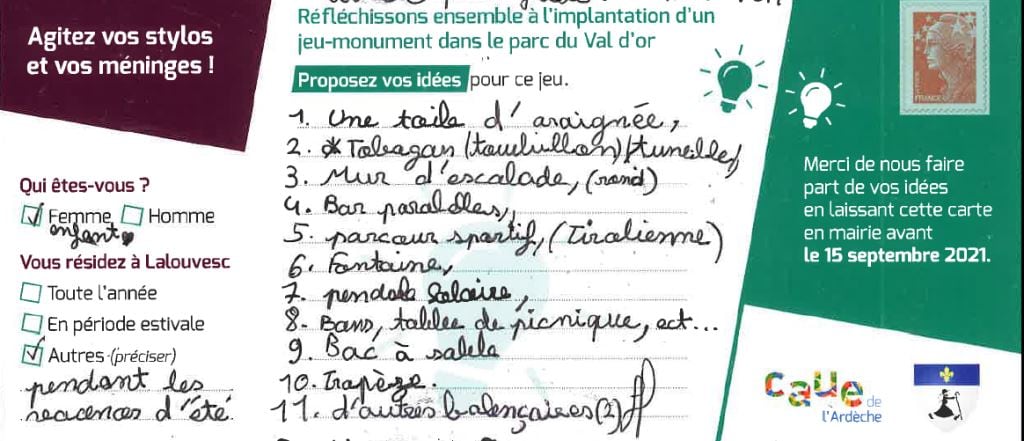 Agitez vos stylos
et vos méninges !
Qui êtes-vous ?
Femme Homme
enfant
Vous résidez à Lalouvesc
Toute l'année
En période estivale
Autres (préciser)
pendant les
vacances d'été
Réfléchissons ensemble à l'implantation d'un
jeu-monument dans le parc du Val d'or
Proposez vos idées pour ce jeu.
1. Une toile d'araignée,
2. Tobagan (tourbillon)/tunelle/
3. Mur d'escalade, (rond)
4. Bar paralelles,
5. parcour sportif, (Tirolienne)
6. Fontaine,
7. pendule solaire,
8. Bans, tables de picnique, ect...
9. Bac à sable
10. Trapèze.
11. d'autres balençoires (2)
FRANCE
Merci de nous faire
part de vos idées
en laissant cette carte
en mairie avant
le 15 septembre 2021.
CAUE de
l'Ardèche